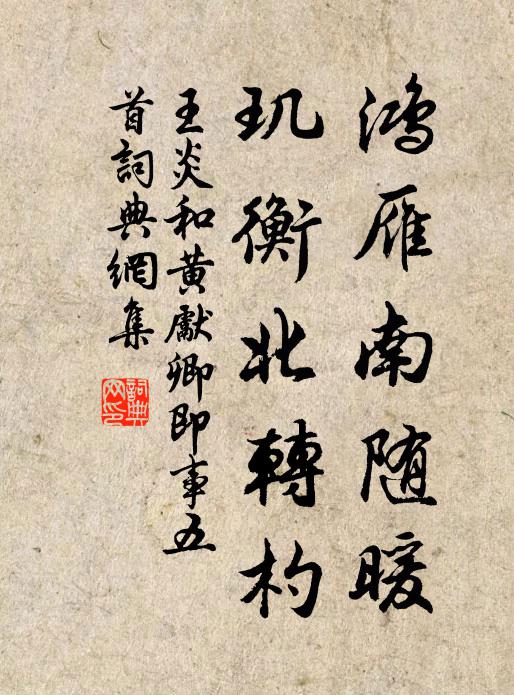 鸿雁南随暖
玑衡北轉杓
王炎和黄獻卿即事五
首詞典網集
詞典
网印